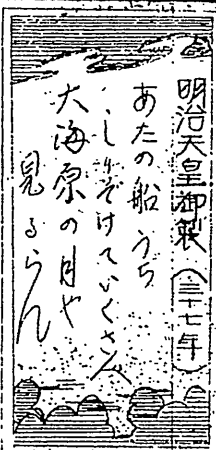 明治天皇御製（三十七年）
あたの船うち
しりぞけていくさ人
大海原の月や
見るらん